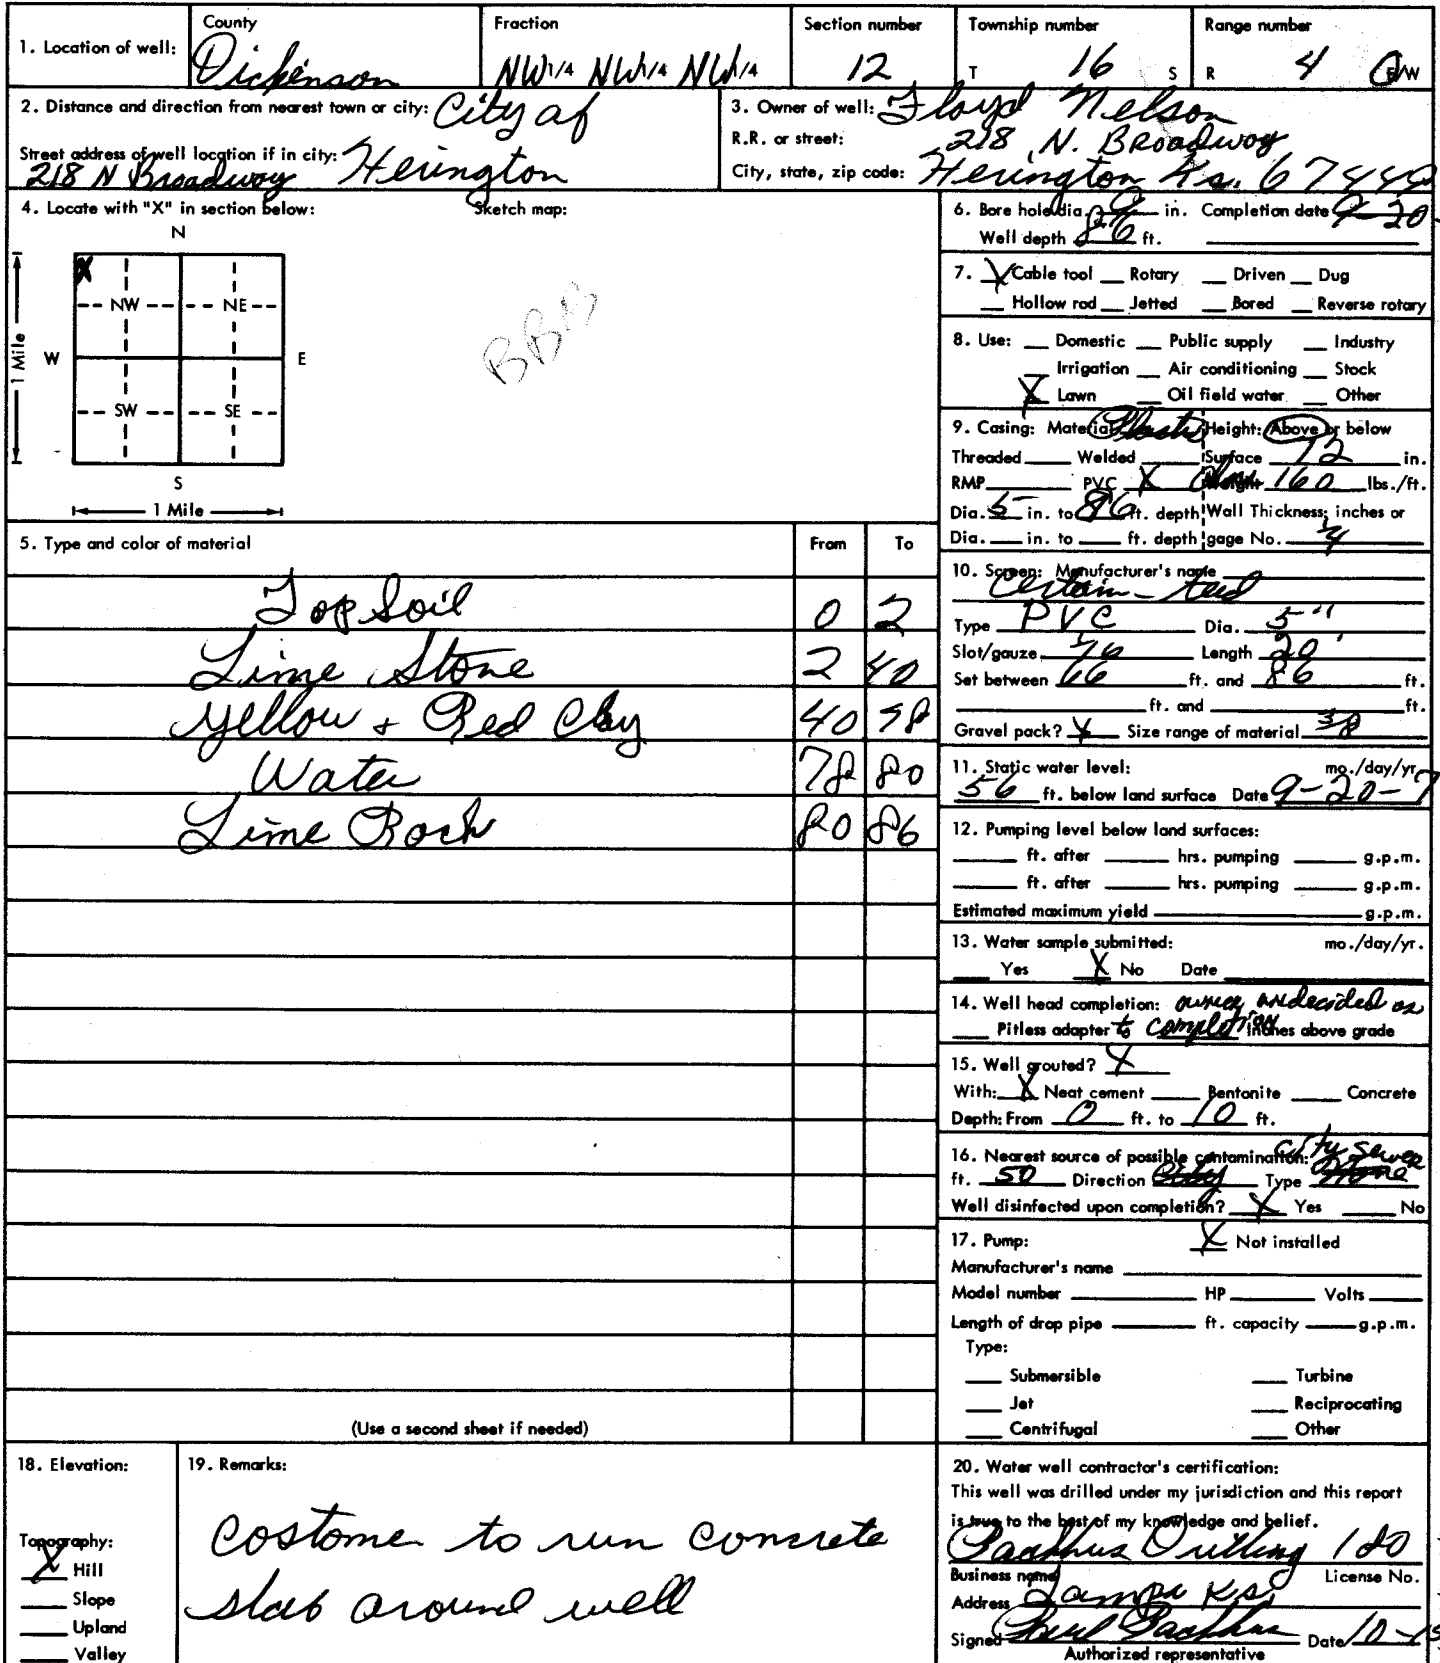 County Fraction Section number Township number Range number
1. Location of well: Dickinson NW 1/4 NW 1/4 NW 1/4 12 T 16 S R 4 E/W
2. Distance and direction from nearest town or city: City of
Street address of well location if in city: Herington
218 N Broadway
3. Owner of well: Floyd Nelson
R.R. or street: 218 N. Broadway
City, state, zip code: Herington Ks. 67449
4. Locate with "X" in section below: Sketch map:
N
X
NW NE
W E
1 Mile
SW SE
S
1 Mile
BBB
5. Type and color of material From To
Top Soil 0 2
Lime Stone 2 40
Yellow + Red Clay 40 78
Water 78 80
Lime Rock 80 86
(Use a second sheet if needed)
6. Bore hole dia. 9 in. Completion date 9-20-
Well depth 86 ft.
7. X Cable tool Rotary Driven Dug
Hollow rod Jetted Bored Reverse rotary
8. Use: Domestic Public supply Industry
Irrigation Air conditioning Stock
X Lawn Oil field water Other
9. Casing: Material Plastic Height: Above or below
Threaded Welded Surface 12 in.
RMP PVC X Weight 160 lbs./ft.
Dia. 5 in. to 86 ft. depth Wall Thickness: inches or
Dia. in. to ft. depth gage No. 1/4
10. Screen: Manufacturer's name
Certain-teed
Type PVC Dia. 5"
Slot/gauze 1/16 Length 20'
Set between 66 ft. and 86 ft.
ft. and ft.
Gravel pack? X Size range of material 3/8
11. Static water level: mo./day/yr.
56 ft. below land surface Date 9-20-7
12. Pumping level below land surfaces:
ft. after hrs. pumping g.p.m.
ft. after hrs. pumping g.p.m.
Estimated maximum yield g.p.m.
13. Water sample submitted: mo./day/yr.
Yes X No Date
14. Well head completion: owner undecided as
Pitless adapter to completion Inches above grade
15. Well grouted? X
With: X Neat cement Bentonite Concrete
Depth: From 0 ft. to 10 ft.
16. Nearest source of possible contamination: city sewer
ft. 50 Direction City Type None
Well disinfected upon completion? X Yes No
17. Pump: X Not installed
Manufacturer's name
Model number HP Volts
Length of drop pipe ft. capacity g.p.m.
Type:
Submersible Turbine
Jet Reciprocating
Centrifugal Other
18. Elevation:
Topography:
X Hill
Slope
Upland
Valley
19. Remarks:
Costome to run concrete
slab around well
20. Water well contractor's certification:
This well was drilled under my jurisdiction and this report
is true to the best of my knowledge and belief.
Backhus Drilling 180
Business name License No.
Address Tampa Ks.
Signed Backhus Date 10-15
Authorized representative